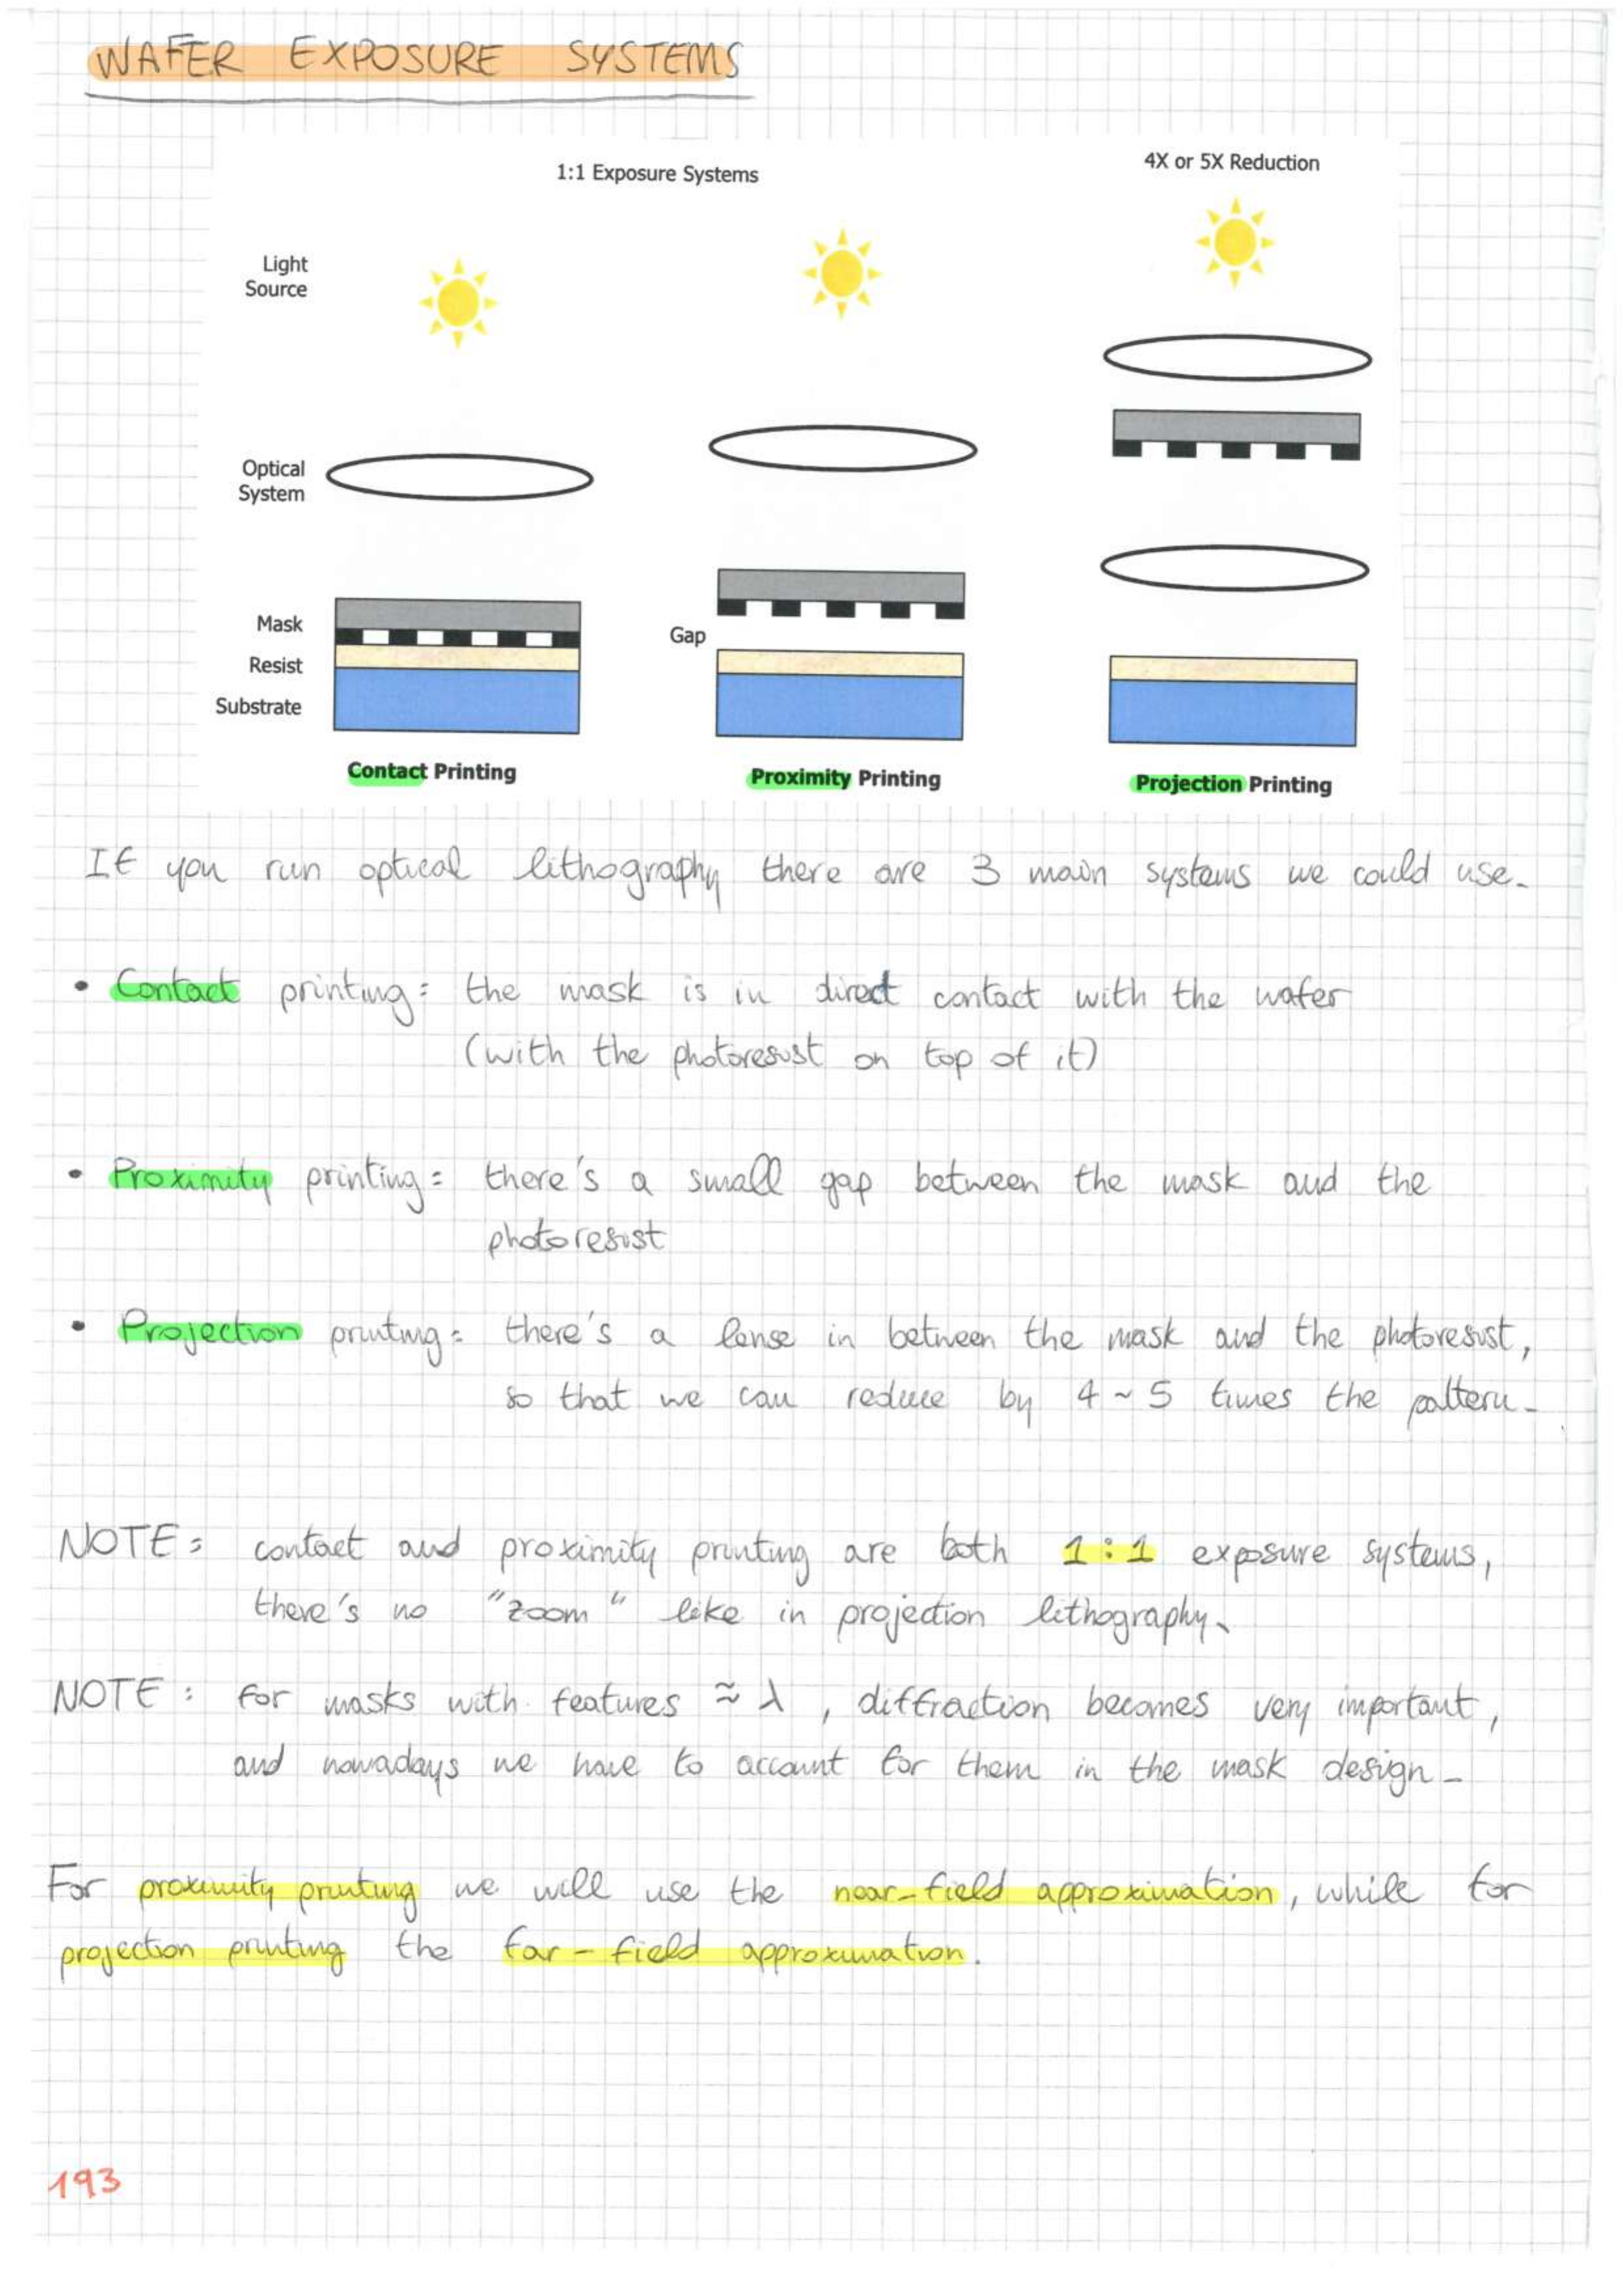 WAFER EXPOSURE SYSTEMS
1:1 Exposure Systems
4X or 5X Reduction
Light
Source
Optical
System
Mask
Resist
Substrate
Gap
Contact Printing
Proximity Printing
Projection Printing
If you run optical lithography there are 3 main systems we could use.
• Contact printing: the mask is in direct contact with the wafer
(with the photoresist on top of it)
• Proximity printing: there's a small gap between the mask and the
photoresist
• Projection printing: there's a lense in between the mask and the photoresist,
so that we can reduce by 4 ~ 5 times the pattern.
NOTE: contact and proximity printing are both 1:1 exposure systems,
there's no "zoom" like in projection lithography.
NOTE: for masks with features ≈ λ, diffraction becomes very important,
and nowadays we have to account for them in the mask design.
For proximity printing we will use the near-field approximation, while for
projection printing the far-field approximation.
193